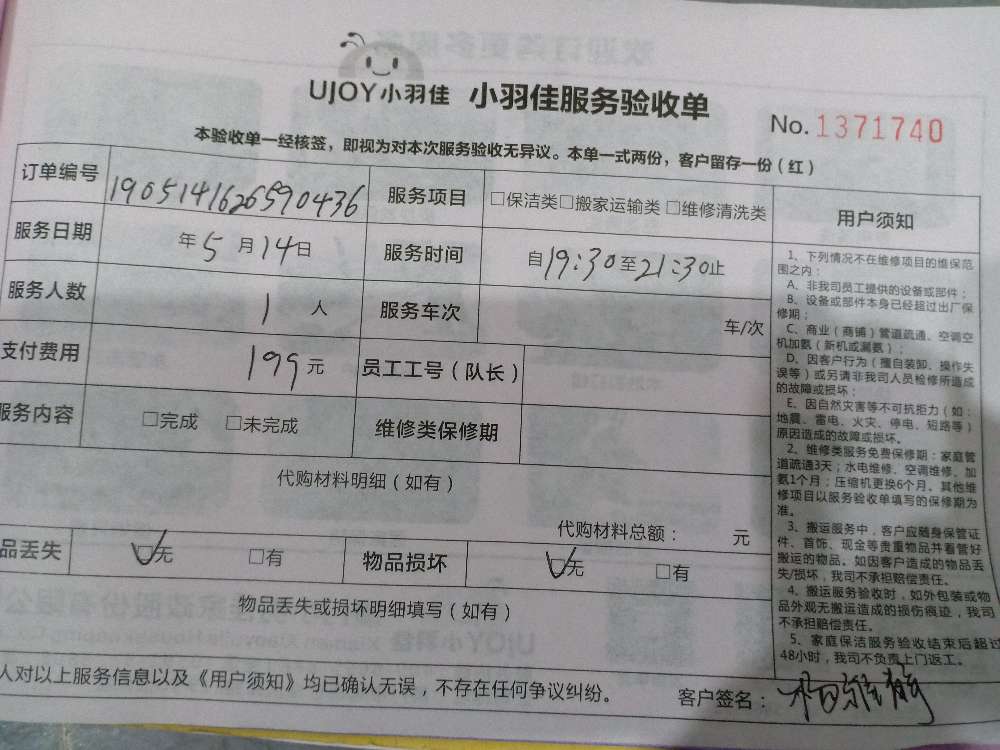 UJOY小羽佳 小羽佳服务验收单
No. 1371740
本验收单一经核签，即视为对本次服务验收无异议。本单一式两份，客户留存一份（红）
订单编号 1905141626590436 服务项目 □保洁类□搬家运输类 □维修清洗类
服务日期 年5月14日 服务时间 自19:30至21:30止
服务人数 1 人 服务车次 车/次
支付费用 199元 员工工号（队长）
服务内容 □完成 □未完成 维修类保修期
代购材料明细（如有）
代购材料总额： 元
品丢失 ☑无 □有 物品损坏 ☑无 □有
物品丢失或损坏明细填写（如有）
人对以上服务信息以及《用户须知》均已确认无误，不存在任何争议纠纷。 客户签名：
用户须知
1、下列情况不在维修项目的维保范
围之内：
A、非我司员工提供的设备或部件；
B、设备或部件本身已经超过出厂保
修期；
C、商业（商铺）管道疏通、空调空
机加氨（新机或漏氨）；
D、因客户行为（擅自装卸、操作失
误等）或另请非我司人员检修所造成
的故障或损坏；
E、因自然灾害等不可抗拒力（如：
地震、雷电、火灾、停电、短路等）
原因造成的故障或损坏。
2、维修类服务免费保修期：家庭管
道疏通3天；水电维修、空调维修、加
氨1个月；压缩机更换6个月。其他维
修项目以服务验收单填写的保修期为
准。
3、搬运服务中，客户应随身保管证
件、首饰、现金等贵重物品并看管好
搬运的物品。如因客户造成的物品丢
失/损坏，我司不承担赔偿责任。
4、搬运服务验收时，如外包装或物
品外观无搬运造成的损伤痕迹，我司
不承担赔偿责任。
5、家庭保洁服务验收结束后超过
48小时，我司不负责上门返工。